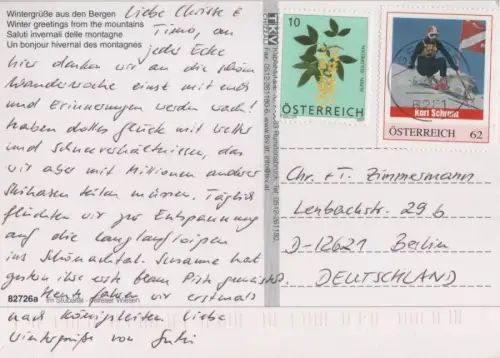 Wintergrüße aus den Bergen
Winter greetings from the mountains
Saluti invernali delle montagne
Un bonjour hivernal des montagnes
Liebe Christe &
Timo, an
jeder Ecke
hier denken wir an die schöne
Wanderwoche einst mit euch
und Erinnerungen werden wach!
haben tolles Glück mit Wetter
und Schneeverhältnissen, das
wir aber mit Millionen anderer
Skihasen teilen müssen. Täglich
flüchten wir zur Entspannung
auf die Langlaufloipen
ins Schönachtal. Susanne hat
gestern ihre erste blaue Piste gemeistert
Heute fahren wir erstmals
nach Königsleiten Liebe
Wintergrüße von
82726a
TKV
10
ÖSTERREICH
Karl Schranz
ÖSTERREICH 62
Chr. + T. Zimmermann
Lenbachstr. 29 b
D-12621 Berlin
DEUTSCHLAND